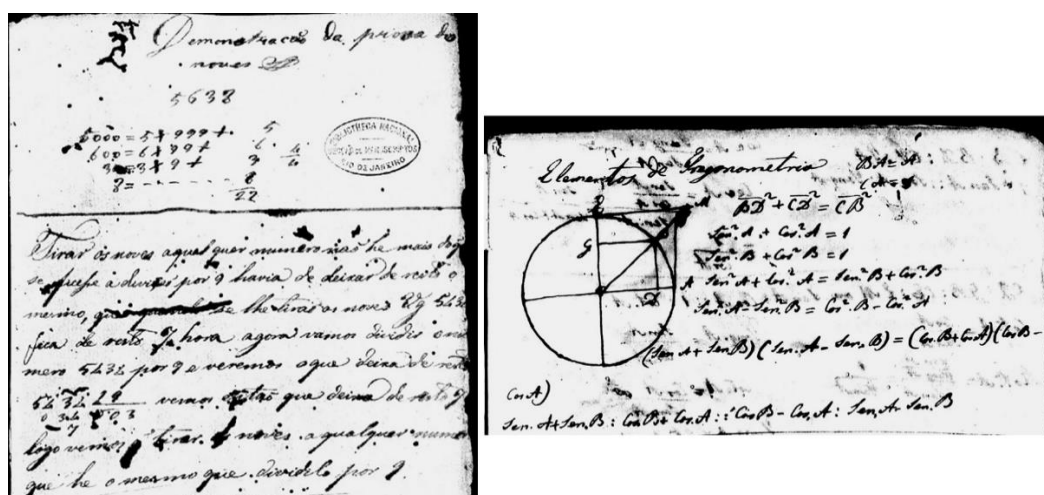 Demonstracaõ da prova do
noves
5638
5000 = 5 × 999 + 5
600 = 6 × 99 + 6
3 = 3 × 9 + 3
8 = - - - - - - 8
22
4
4
BIBLIOTHECA NACIONAL
RIO DE JANEIRO
Tirar os noves aqualquer numero naõ he mais do q
se quese a divisaõ por 9 havia de deixar de resto o
mesmo, se lhe tiraõ os noves
fica de resto 7, hora agora vamos dividir o nu
mero 5632 por 9 e veremos o que deixa de resto
vemos que deixa de resto 7
logo vemos q tirar os noves aqualquer nume
que he o mesmo que dividelo por 9.
Elementos de Trigonometria
BA = A
BD² + CD² = CB²
Sen².A + Cos².A = 1
Sen².B + Cos².B = 1
Sen².A + Cos².A = Sen².B + Cos².B
Sen².A - Sen².B = Cos².B - Cos².A
(Sen A + Sen B) (Sen. A - Sen. B) = (Cos.B + Cos.A) (Cos B -
Cos A)
Sen. A + Sen. B : Cos. B + Cos. A :: Cos B - Cos. A : Sen. A - Sen. B